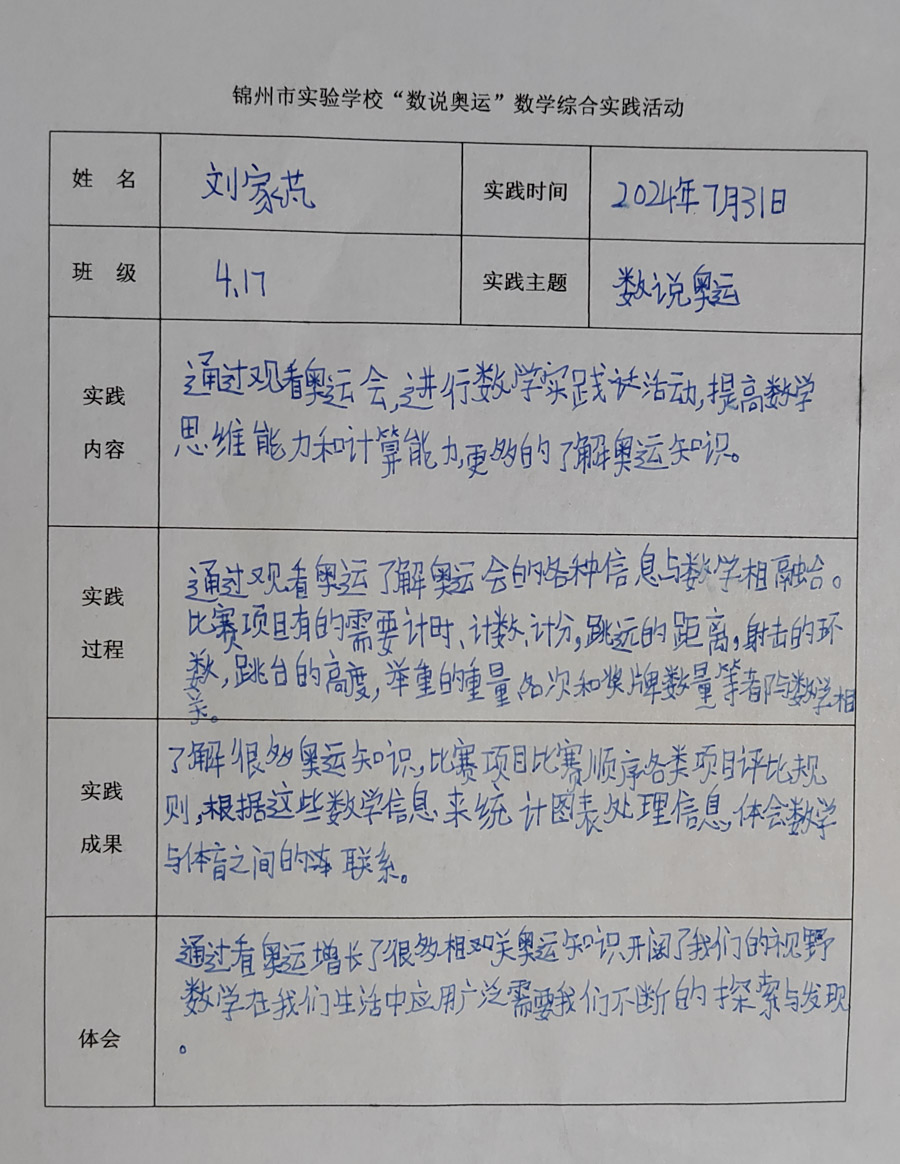 锦州市实验学校“数说奥运”数学综合实践活动
姓 名 刘家 实践时间 2024年7月31日
班 级 4.17 实践主题 数说奥运
实践
内容
通过观看奥运会,进行数学实践活动,提高数学
思维能力和计算能力,更多的了解奥运知识。
实践
过程
通过观看奥运了解奥运会的各种信息与数学相融合。
比赛项目有的需要计时、计数、计分,跳远的距离,射击的环
数,跳台的高度,举重的重量,名次和奖牌数量等都与数学相
关。
实践
成果
了解很多奥运知识,比赛项目比赛顺序各类项目评比规
则,根据这些数学信息,来统计图表,处理信息,体会数学
与体育之间的联系。
体会
通过看奥运增长了很多相关奥运知识,开阔了我们的视野
数学在我们生活中应用广泛需要我们不断的探索与发现
。